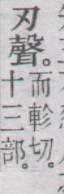 刃聲。
而軫切。
十三部。